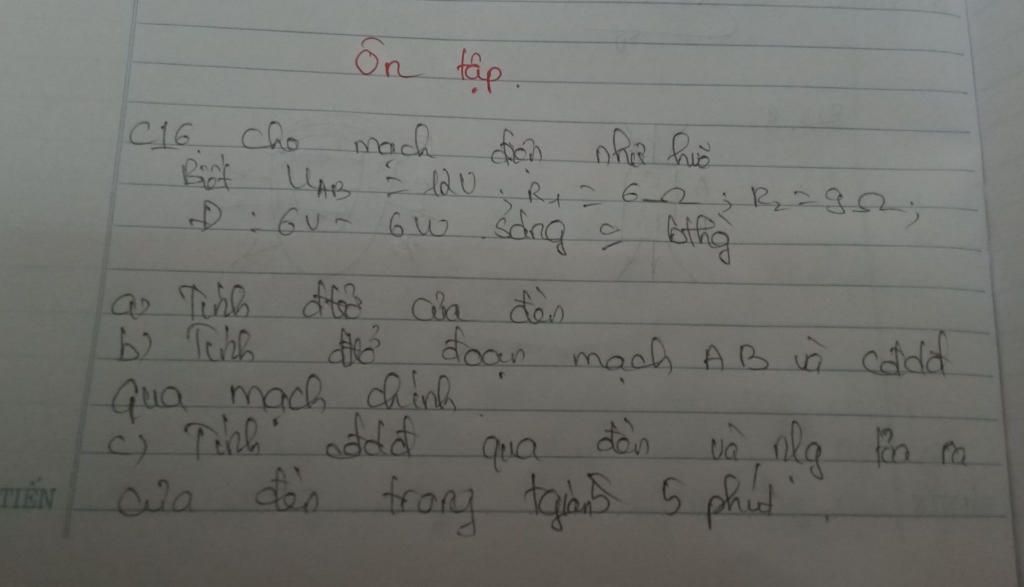 Ôn tập.
C16. Cho mạch điện như
Biết U_AB = 12V ; R₁ = 6Ω ; R₂ = 9Ω ;
Đ : 6V - 6W sáng bthg
a) Tính của đèn
b) Tính đoạn mạch AB và cđdđ
qua mạch chính.
c) Tính cđdđ qua đèn và nlg ra
của đèn trong 5 phút.
TIẾN